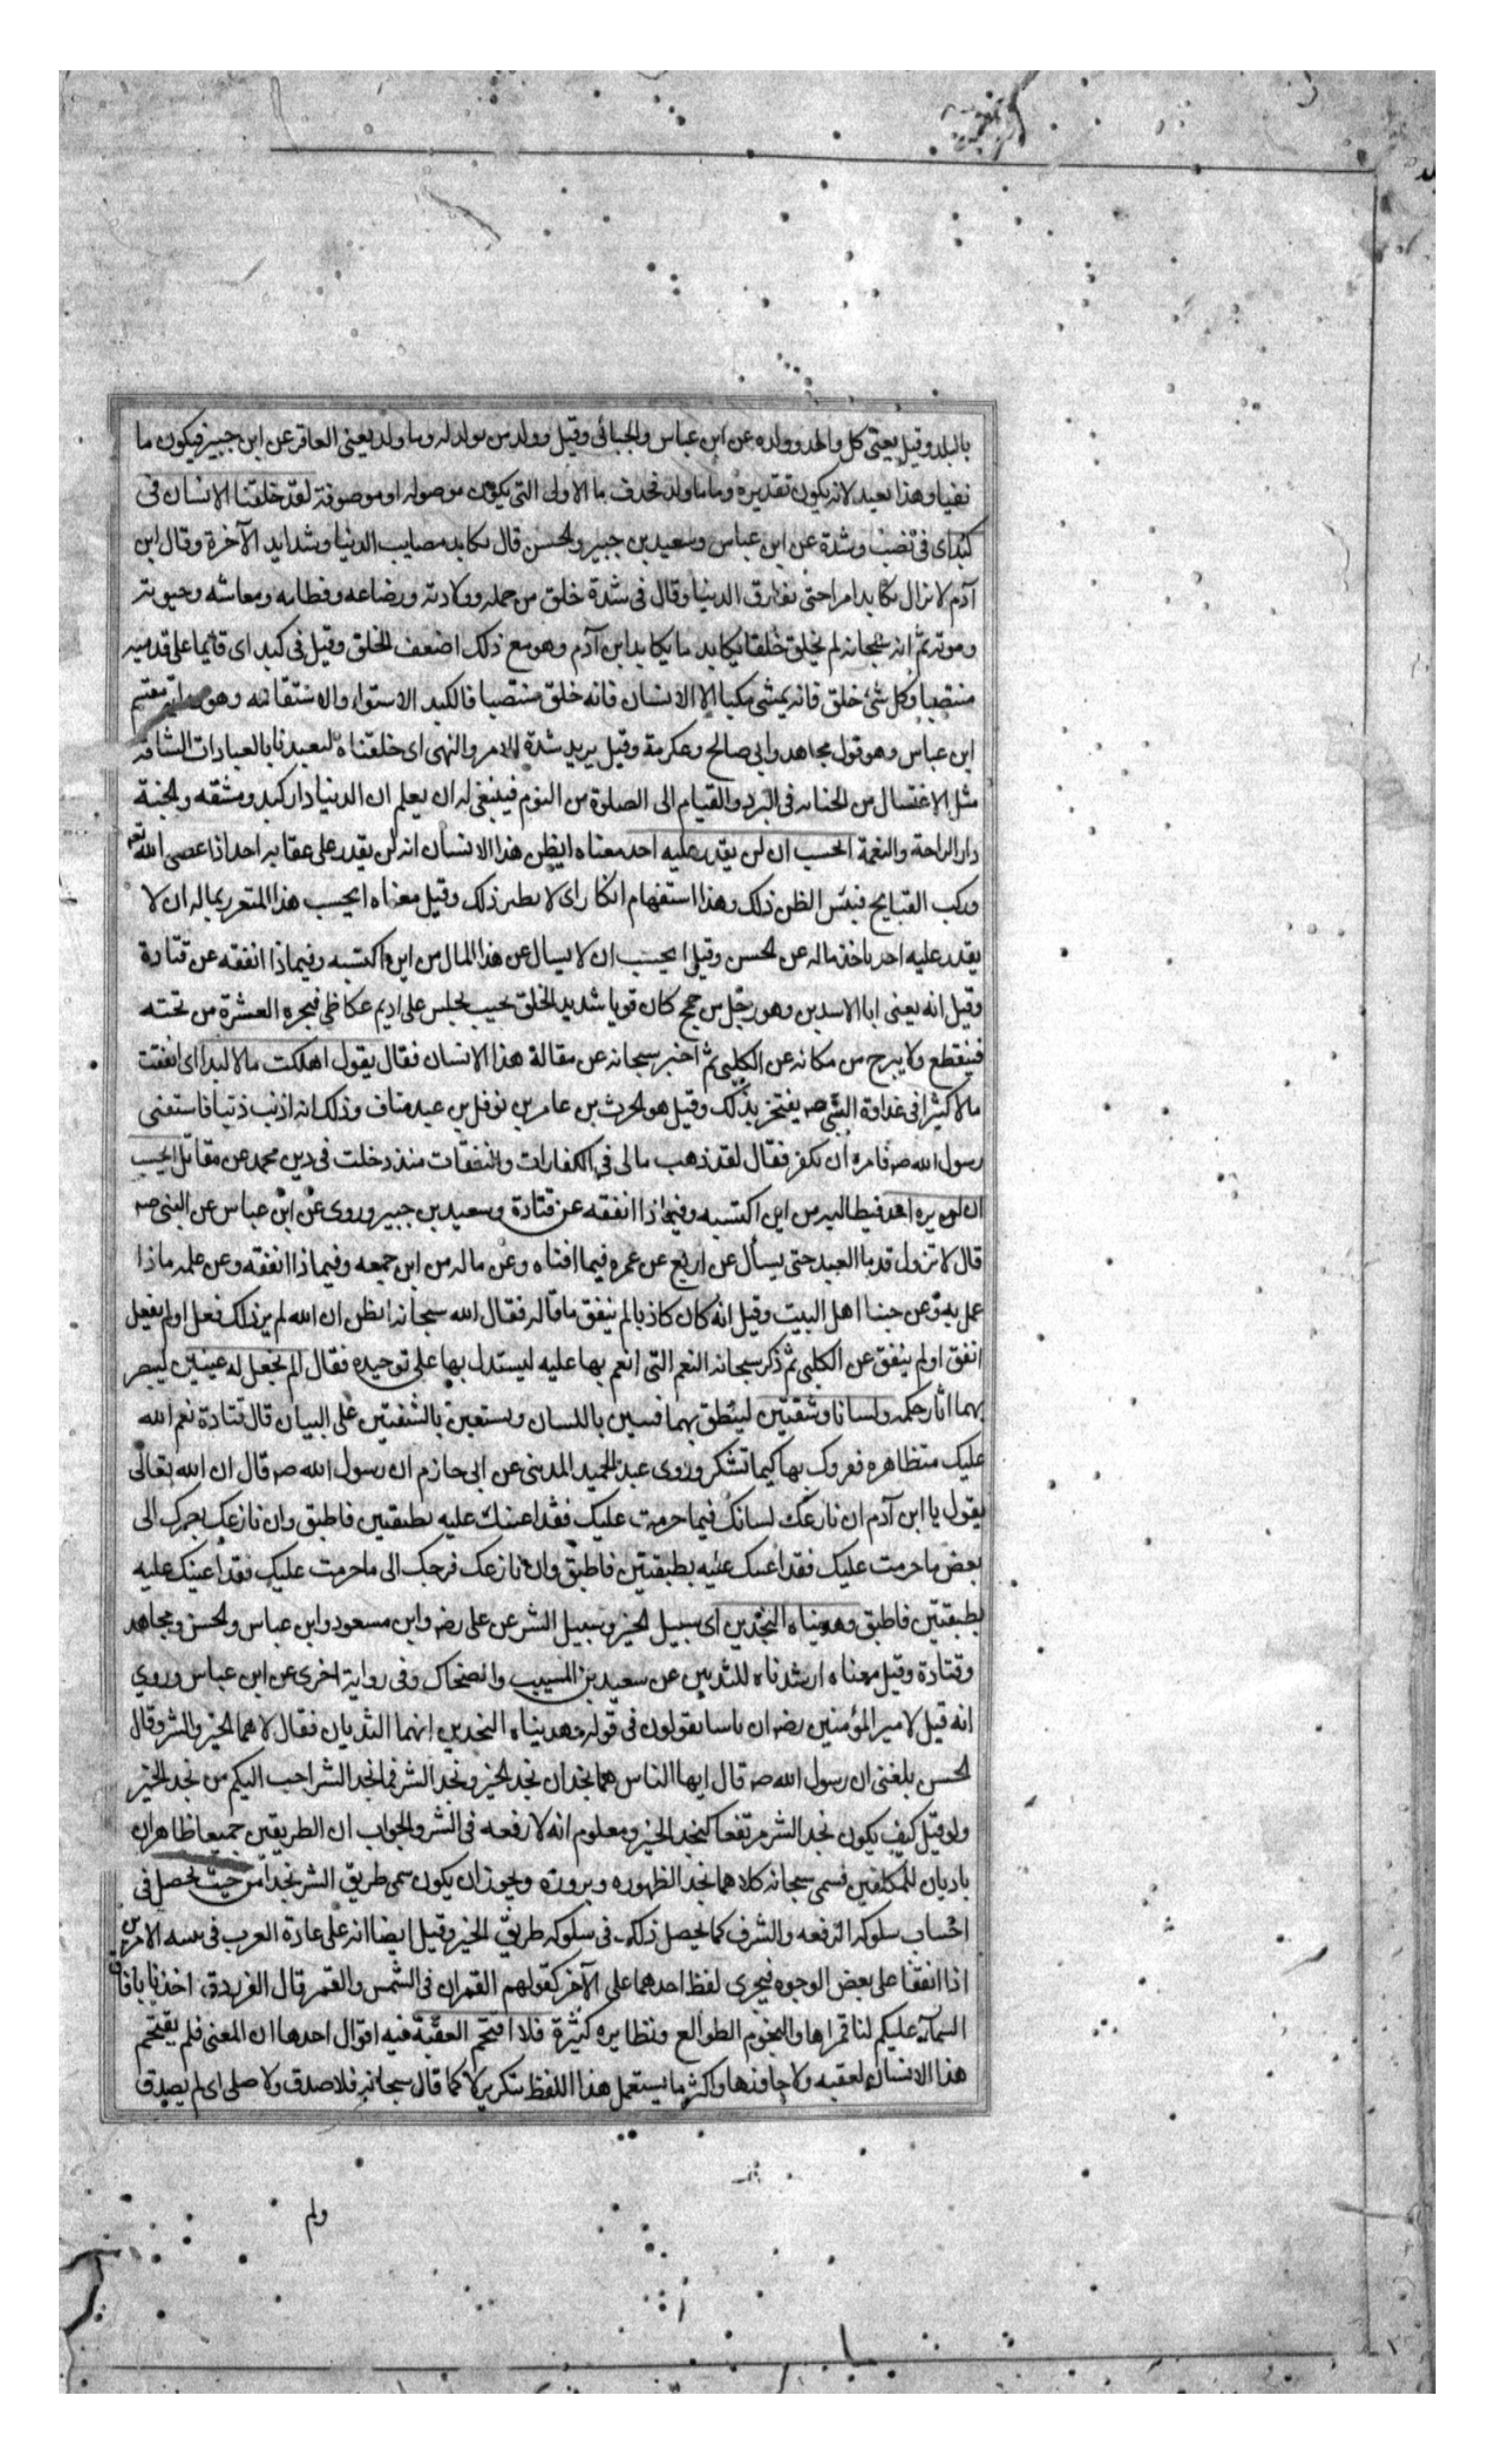 بالبلد وقيل يعنى كل والد وولده عن ابن عباس والجبائى وقيل ووالد من يولد له وما ولد يعنى العاقر عن ابن جبير فيكون ما
نفيا وهذا بعيد لانه يكون تقديره وما ما ولد فحذف ما الاولى التى يكون موصوله او موصوفة لقد خلقنا الانسان فى
كبد اى فى نصب وشدة عن ابن عباس وسعيد بن جبير والحسن قال يكابد مصايب الدنيا وشدايد الآخرة وقال ابن
آدم لا يزال يكابد امرا حتى يفارق الدنيا وقال فى شدة خلق من حمله وولادته ورضاعه وفطامه ومعاشه وحيوته
وموته ثم انه سبحانه لم يخلق خلقا يكابد ما يكابد ابن آدم وهو مع ذلك اضعف الخلق وقيل فى كبد اى قائما على قدميه
منتصبا وكل شئ خلق فانه يمشى مكبا الا الانسان فانه خلق منتصبا فالكبد الاستواء والاستقامه وهو مقسم
ابن عباس وهو قول مجاهد وابى صالح وعكرمة وقيل يريد شدة الامر والنهى اى خلقناه ليعبدنا بالعبادات الشاقه
مثل الاغتسال من الجنابه فى البرد والقيام الى الصلوة من النوم فينبغى له ان يعلم ان الدنيا دار كبد ومشقه والجنة
دار الراحة والنعمة ايحسب ان لن يقدر عليه احد معناه ايظن هذا الانسان انه لن يقدر على عقابه احد اذا عصى الله
وركب القبايح فبئس الظن ذلك وهذا استفهام انكار اى لا يظن ذلك وقيل معناه ايحسب هذا المتعزز بماله ان لا
يقدر عليه احد ياخذ ماله عن الحسن وقيل ايحسب ان لا يسال عن هذا المال من اين اكتسبه وفيما ذا انفقه عن قتادة
وقيل انه يعنى ابا الاسدين وهو رجل من جمح كان قويا شديد الخلق بحيث يجلس على اديم عكاظى فيجره العشرة من تحته
فينقطع ولا يبرح من مكانه عن الكلبى ثم اخبر سبحانه عن مقالة هذا الانسان فقال يقول اهلكت مالا لبدا اى انفقت
مالا كثيرا فى عداوة النبى صه يفتخر بذلك وقيل هو الحرث بن عامر بن نوفل بن عبد مناف وذلك انه اذنب ذنبا فاستفتى
رسول الله صه فامره ان يكفر فقال لقد ذهب مالى فى الكفارات والنفقات منذ دخلت فى دين محمد عن مقاتل ايحسب
ان لم يره احد فيطالبه من اين اكتسبه وفيما ذا انفقه عن قتادة وسعيد بن جبير وروى عن ابن عباس عن النبى صه
قال لا تزول قدما العبد حتى يسأل عن اربع عن عمره فيما افناه وعن ماله من اين جمعه وفيما ذا انفقه وعن علمه ماذا
عمل به وعن حبنا اهل البيت وقيل انه كان كاذبا لم ينفق ما قاله فقال الله سبحانه ايظن ان الله لم ير ذلك فعل او لم يفعل
انفق او لم ينفق عن الكلبى ثم ذكر سبحانه النعم التى انعم بها عليه ليستدل بها على توحيده فقال الم نجعل له عينين ليبصر
بهما اثار حكمه ولسانا وشفتين لينطق بهما فيبين باللسان ويستعين بالشفتين على البيان قال قتادة نعم الله
عليك متظاهره فقررك بها كيما تشكر وروى عبد الحميد المدينى عن ابى حازم ان رسول الله صه قال ان الله تعالى
يقول يا ابن آدم ان نازعك لسانك فيما حرمت عليك فقد اعنتك عليه بطبقتين فاطبق وان نازعك بصرك الى
بعض ما حرمت عليك فقد اعنتك عليه بطبقتين فاطبق وان نازعك فرجك الى ما حرمت عليك فقد اعنتك عليه
بطبقتين فاطبق وهديناه النجدين اى سبيل الخير وسبيل الشر عن على رضه وابن مسعود وابن عباس والحسن ومجاهد
وقتادة وقيل معناه ارشدناه للثديين عن سعيد بن المسيب والضحاك وفى رواية اخرى عن ابن عباس وروي
انه قيل لامير المؤمنين رضه ان ناسا يقولون فى قوله وهديناه النجدين انهما الثديان فقال لا هما الخير والشر وقال
الحسن بلغنى ان رسول الله صه قال ايها الناس هما نجدان نجد الخير ونجد الشر فما نجد الشر احب اليكم من نجد الخير
ولو قيل كيف يكون نجد الشر مرتفعا كنجد الخير ومعلوم انه لا رفعه فى الشر والجواب ان الطريقين جميعا ظاهران
باديان للمكلفين فسمى سبحانه كلاهما نجدا لظهوره وبروزه ويجوز ان يكون سمى طريق الشر نجدا من حيث يحصل فى
اجتناب سلوكه الرفعه والشرف كما يحصل ذلك فى سلوكه طريق الخير وقيل ايضا انه على عادة العرب فى تثنيه الامرين
اذا اتفقا على بعض الوجوه فيجرى لفظ احدهما على الآخر كقولهم القمران فى الشمس والقمر قال الفرزدق اخذنا بافاق
السماء عليكم لنا قمراها والنجوم الطوالع ونظايره كثيرة فلا اقتحم العقبة فيه اقوال احدها ان المعنى فلم يقتحم
هذا الانسان العقبه ولا جاوزها واكثر ما يستعمل هذا اللفظ بتكرير لا كما قال سبحانه فلا صدق ولا صلى اى لم يصدق
ولم